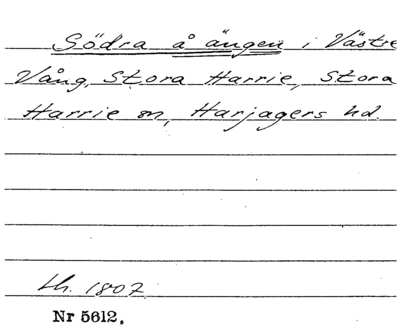 Södra å ängen i Västre
Vång, Stora Harrie, Stora
Harrie sn, Harjagers hd.
Lh. 1807
Nr 5612.